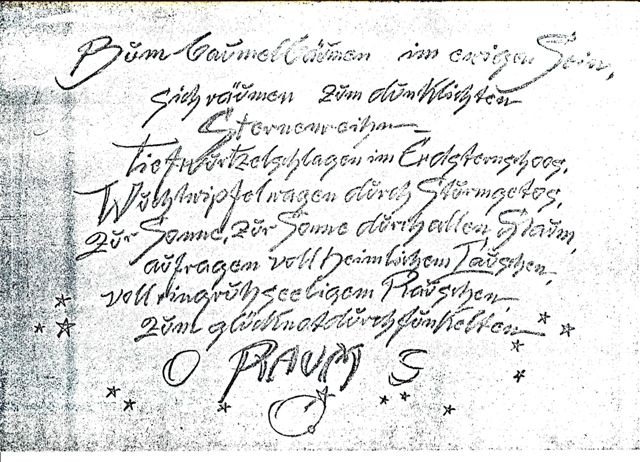 Bǔm baǔmelbäǔmen im ewigen Sein,
sich räǔmen zǔm dǔnklichten
Sternenreihn
Tiefwǔrtzelschlagen im Erdsternschoos,
Wǔchtwipfelragen dǔrch Stǔrmgetos,
Zǔr Sonne, zǔr Sonne dǔrch allen Staǔm,
aǔfragen voll heimlichem Taǔschen,
voll ringrǔhseeligem Raǔschen,
zǔm glǔcknatdǔrchfǔnkelten
O RAUM S